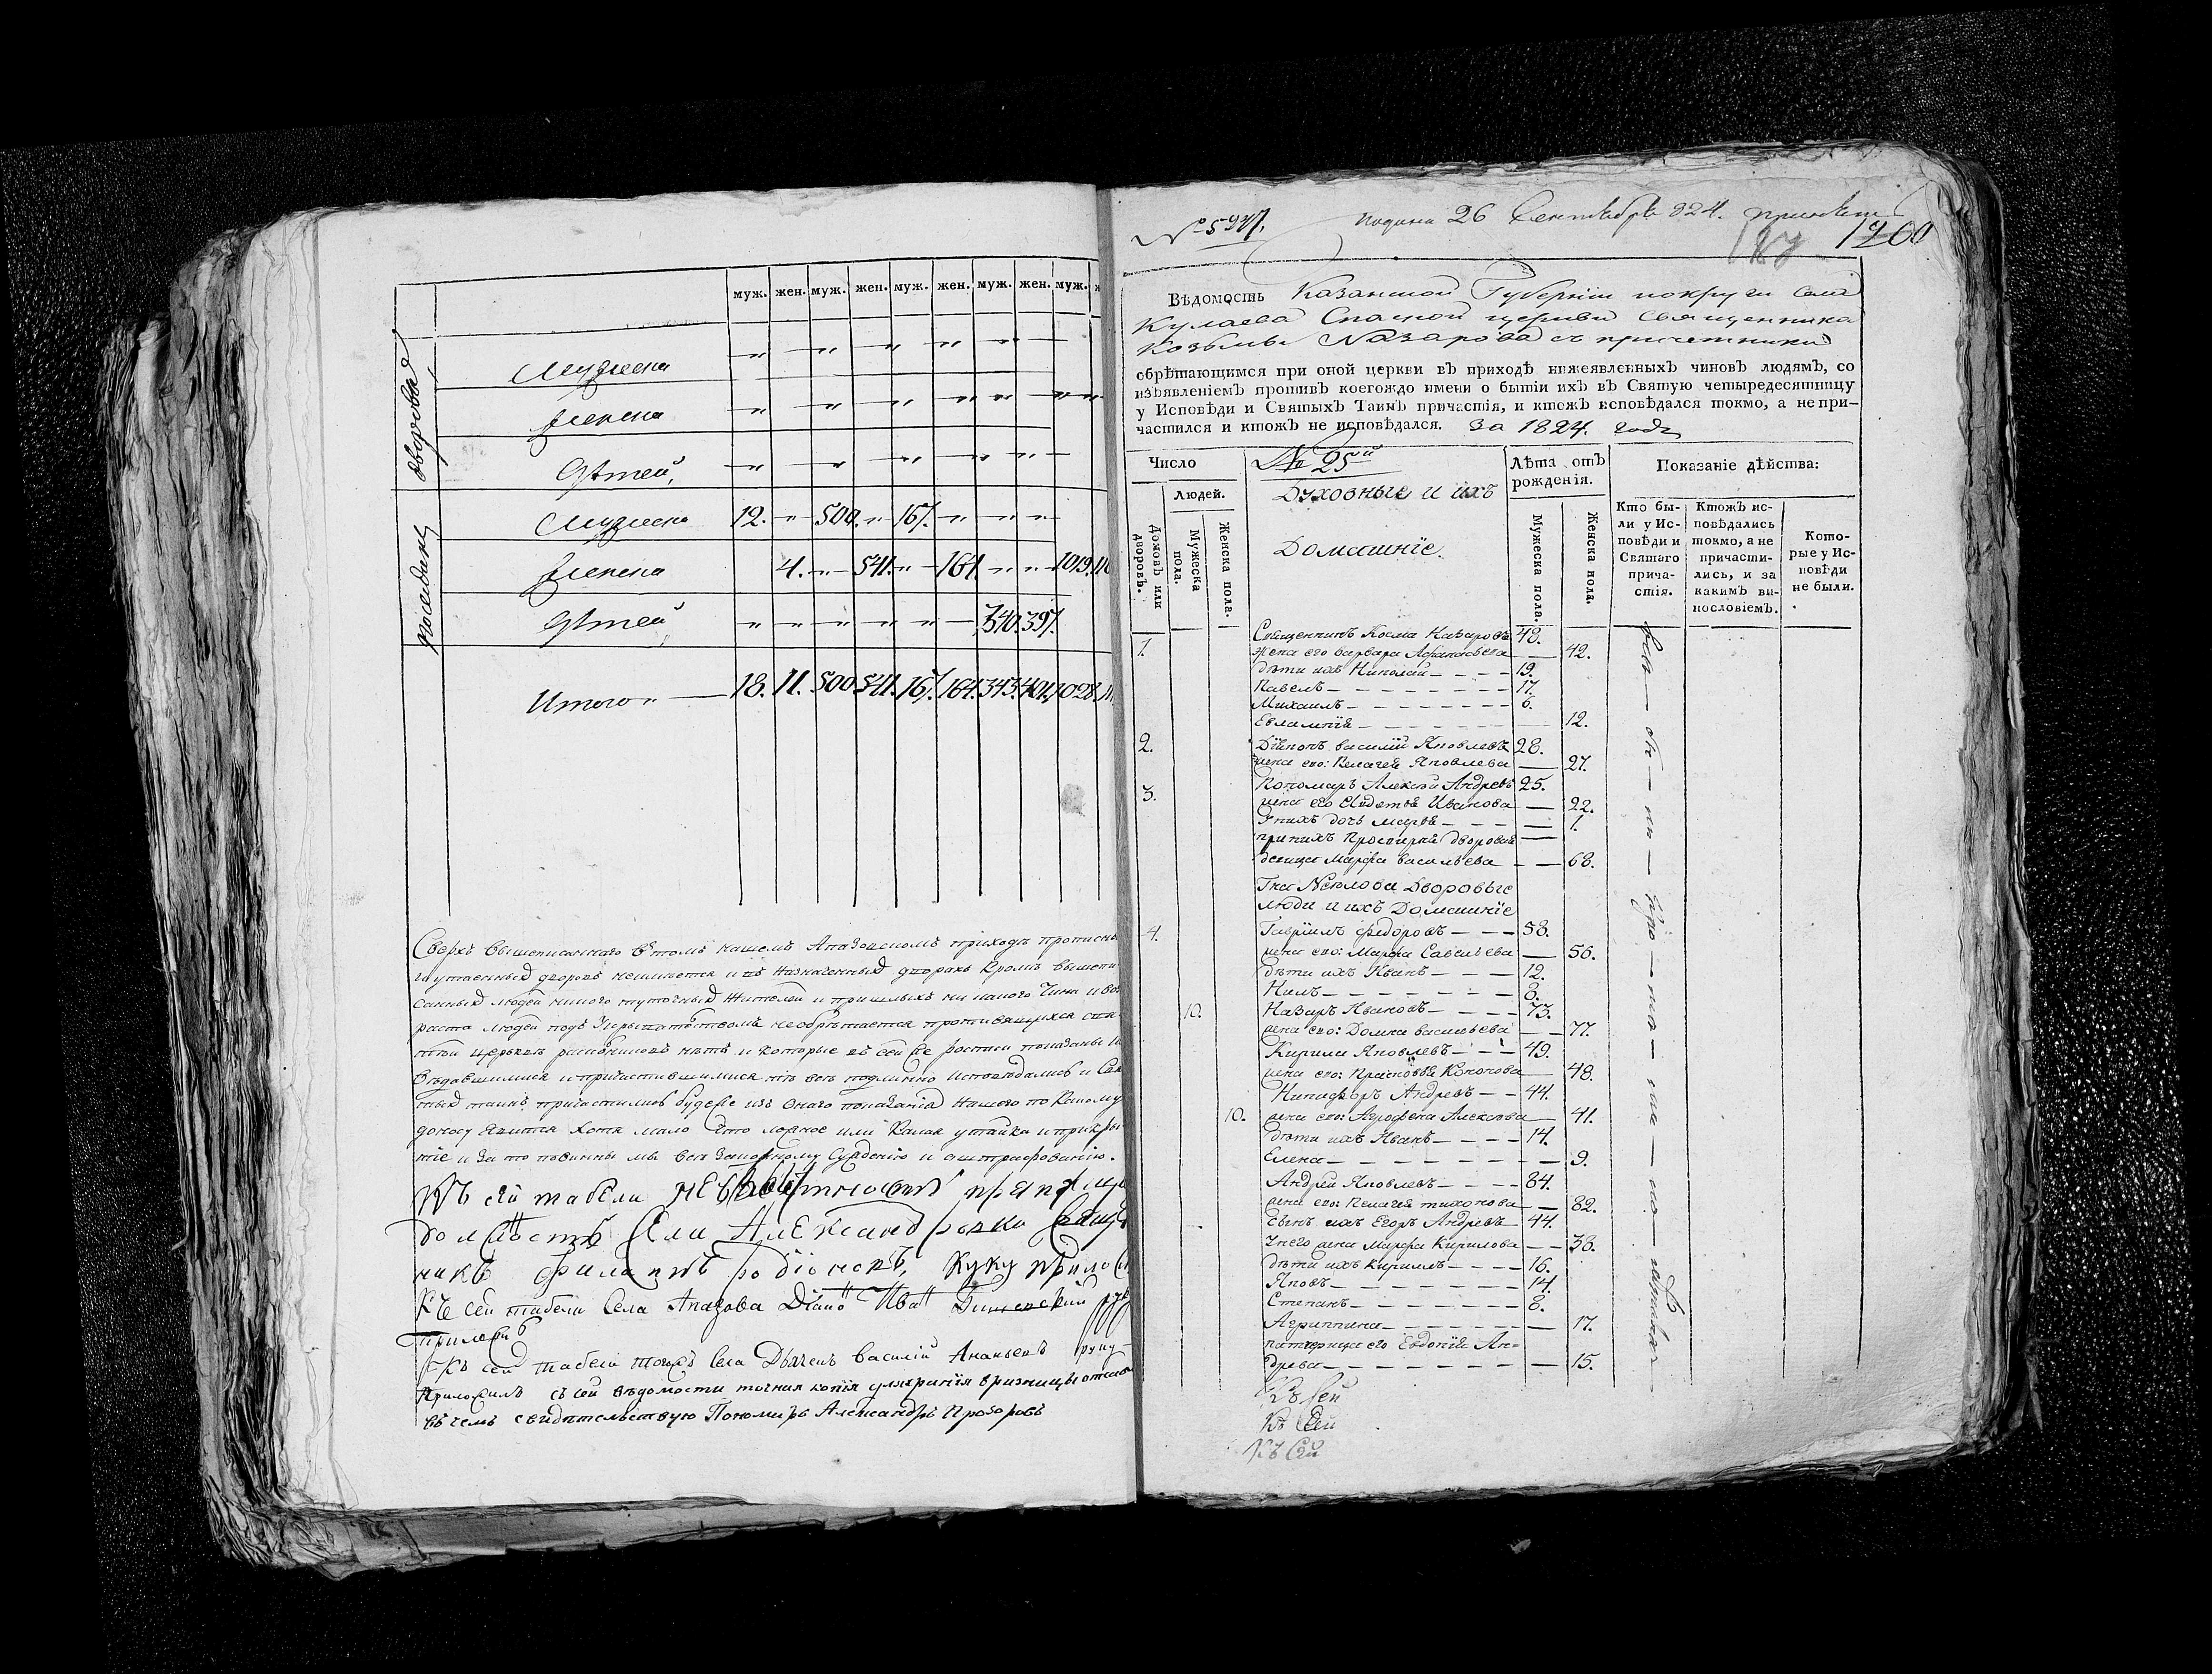 муж. жен. муж. жен. муж. жен. муж. жен. муж.
дворовыя
Мужеска
Женска
Дѣтей,
Мужеска 12. " 500. " 167. " " "
Женска 4. " 541. " 164. " " 1019.
Дѣтей " " " " " 340. 397.
Итого " 18. 11. 500 541. 167. 164. 343. 401. 1028.
Сверхъ вышеписаннаго въ томъ нашемъ Апазовскомъ приходѣ прописныхъ
и утаенныхъ дворовъ неимѣется и въ назначенныхъ дворахъ кромѣ вышепи
санныхъ людей никого тутошныхъ жителей и пришлыхъ ни какого чина и воз
раста людей подъ укрывательствомъ необрѣтается противящихся свя
тѣй церькви раскольниковъ нѣтъ и которые въ сей же росписи показаны и
вѣдавшимися и причастившимися тѣ всѣ подлинно исповѣдались и Свя
тыхъ таинъ причастились будеже изъ онаго показанія нашего по какому
доносу явится хотя мало что ложное или какая утайка и прикры
тіе и за то повинны мы всѣ законному сужденію и аштрафованію.
Къ сей табели
должность села Александровка Свяще
никъ Филаптъ родіоновъ, руку приложи
Къ сей табели села Апазова Діако Иван
приложи
Къ сей табели тогожъ села Дьячекъ василій Ананьевъ руку
приложилъ съ сей вѣдомости точная копія для храненія в ризницѣ
въ чемъ свидѣтельствую Пономарь Александръ Прозоровъ
№ 5947. подана 26 Сентября 824.
187 1760
Вѣдомость Казанской Губерніи покруги села
Кулаева Спаской церкви священника
Козьмы Назарова съ причетники
обрѣтающимся при оной церкви въ приходѣ нижеявленныхъ чиновъ людямъ, со
изъявленіемъ противъ коегождо имени о бытіи ихъ въ Святую четыредесятницу
у Исповѣди и Святыхъ Таинъ причастія, и ктожъ исповѣдался токмо, а не при-
частился и ктожъ не исповѣдался. За 1824. годъ
Число
Людей.
Домовъ или дворовъ.
Мужеска пола.
Женска пола.
№ 25й
Духовные и ихъ
Домашніе.
Лѣта отъ рожденія.
Мужеска пола.
Женска пола.
Показаніе дѣйства:
Кто были у Исповѣди и Святаго причастія.
Ктожъ исповѣдались токмо, а не причастились, и за какимъ винословіемъ.
Которые у Исповѣди не были.
1. Священникъ Косма Назаровъ 48.
жена его варвара Афанасьева 42.
дѣти ихъ Николай 19.
Павелъ 17.
Михаилъ 6.
Евлампія 12.
2. Діяконъ василій Яковлевъ 28.
жена его: Пелагея Яковлева 27.
3. Пономарь Алексѣй Андреевъ 25.
жена его Авдотья Иванова 22.
У нихъ дочь марѳа 1.
при нихъ Просвирня дворовая
девица Марфа васильева 68.
Гна Неклова дворовые
люди и ихъ Домашніе
4. Гавріилъ федоровъ 58.
жена его: Марфа Савельева 56.
дѣти ихъ Иванъ 12.
Нилъ 8.
10. Назаръ Ивановъ 73.
жена его: Домна васильева 77.
Кирила Яковлевъ 49.
жена его: Прасковья Кононова 48.
Никифоръ Андреевъ 44.
10. жена его: Агрофена Алексѣева 41.
дѣти ихъ Иванъ 14.
Елена 9.
Андрей Яковлевъ 84.
жена его: Пелагея тихонова 82.
сынъ ихъ Егоръ Андреевъ 44.
У него жена Марфа Кирилова 38.
дѣти ихъ кирилъ 16.
Яковъ 14.
Степанъ 8.
Агриппина 17.
патчерица его Евдокія Ан=
дреева 15.
Къ сей
Къ Сей
Къ Сей